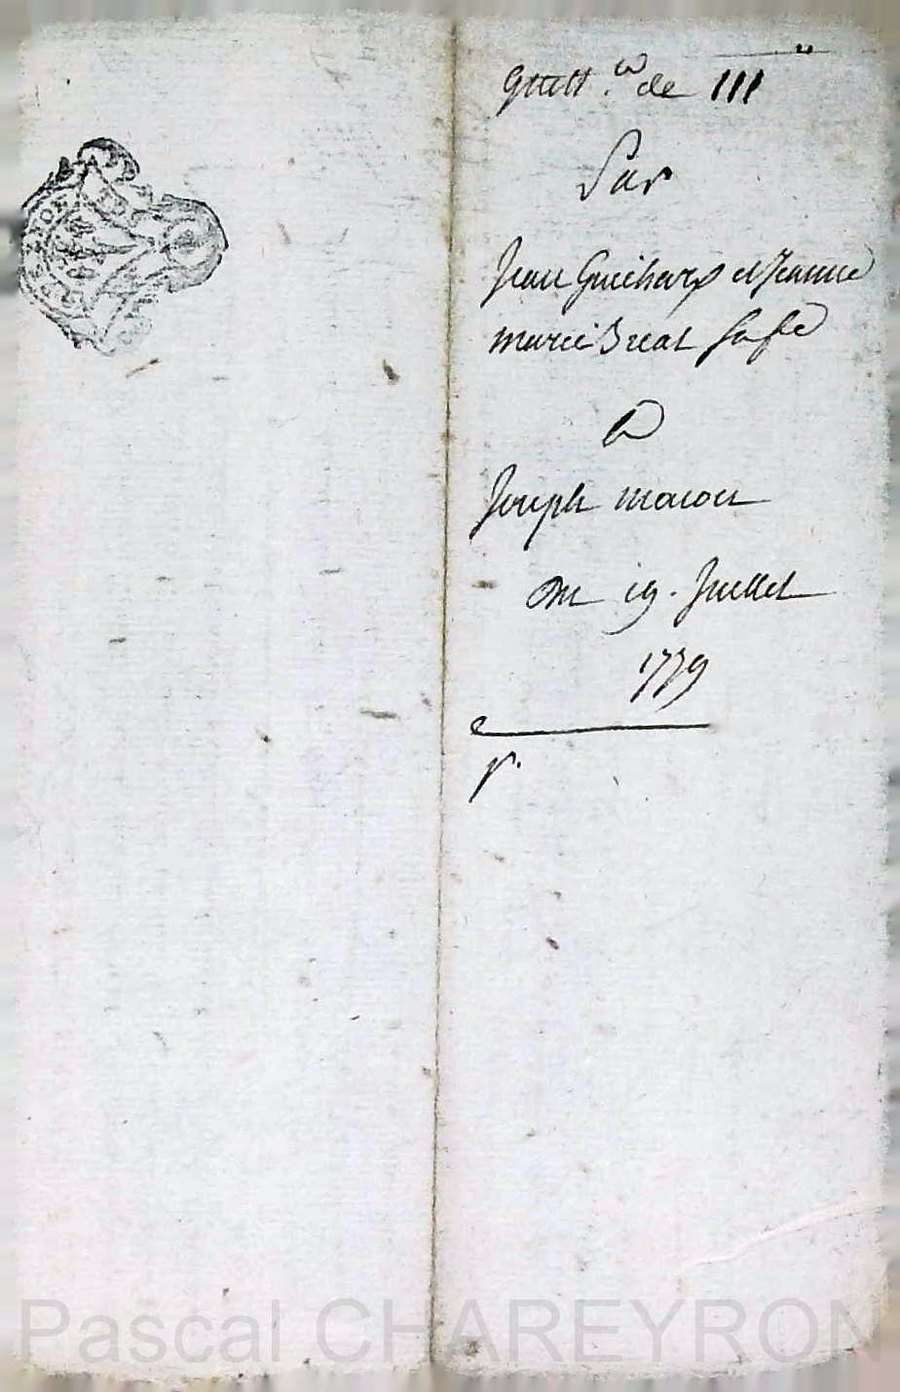 Quitt.ce de 111
Par
Jean Guichard et Jeanne
marie Breat sa fe
A
Joseph
Du 19. Juillet
1779
Pascal CHAREYRON